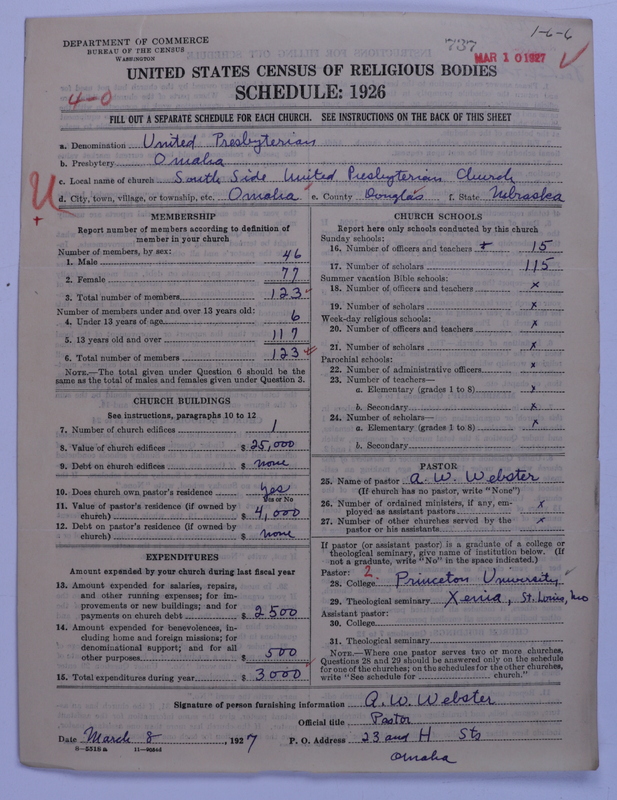 1-6-6
737
DEPARTMENT OF COMMERCE
BUREAU OF THE CENSUS
WASHINGTON
MAR 10 1927
UNITED STATES CENSUS OF RELIGIOUS BODIES
4-0
SCHEDULE: 1926
FILL OUT A SEPARATE SCHEDULE FOR EACH CHURCH. SEE INSTRUCTIONS ON THE BACK OF THIS SHEET
a. Denomination United Presbyterian
b. Presbytery Omaha
c. Local name of church South Side United Presbyterian Church
U
d. City, town, village, or township, etc. Omaha e. County Douglas f. State Nebraska
MEMBERSHIP
Report number of members according to definition of
member in your church
Number of members, by sex:
1. Male 46
2. Female 77
3. Total number of members 123
Number of members under and over 13 years old:
4. Under 13 years of age 6
5. 13 years old and over 117
6. Total number of members 123
NOTE.—The total given under Question 6 should be the
same as the total of males and females given under Question 3.
CHURCH BUILDINGS
See instructions, paragraphs 10 to 12
7. Number of church edifices 1
8. Value of church edifices $ 25,000
9. Debt on church edifices $ none
10. Does church own pastor's residence yes
Yes or No
11. Value of pastor's residence (if owned by
church) $ 4,000
12. Debt on pastor's residence (if owned by
church) $ none
EXPENDITURES
Amount expended by your church during last fiscal year
13. Amount expended for salaries, repairs,
and other running expenses; for im-
provements or new buildings; and for
payments on church debt $ 2500
14. Amount expended for benevolences, in-
cluding home and foreign missions; for
denominational support; and for all
other purposes $ 500
15. Total expenditures during year $ 3000
CHURCH SCHOOLS
Report here only schools conducted by this church
Sunday schools:
16. Number of officers and teachers 15
17. Number of scholars 115
Summer vacation Bible schools:
18. Number of officers and teachers x
19. Number of scholars x
Week-day religious schools:
20. Number of officers and teachers x
21. Number of scholars x
Parochial schools:
22. Number of administrative officers x
23. Number of teachers—
a. Elementary (grades 1 to 8) x
b. Secondary x
24. Number of scholars—
a. Elementary (grades 1 to 8) x
b. Secondary
PASTOR
25. Name of pastor A. W. Webster
(If church has no pastor, write "None")
26. Number of ordained ministers, if any, em-
ployed as assistant pastors x
27. Number of other churches served by the
pastor or his assistants x
If pastor (or assistant pastor) is a graduate of a college or
theological seminary, give name of institution below. (If
not a graduate, write "No" in the space indicated.)
Pastor: 2
28. College Princeton University
29. Theological seminary Xenia, St. Louis, Mo
Assistant pastor:
30. College
31. Theological seminary
NOTE.—Where one pastor serves two or more churches,
Questions 28 and 29 should be answered only on the schedule
for one of the churches; on the schedules for the other churches,
write "See schedule for church."
Signature of person furnishing information A. W. Webster
Official title Pastor
Date March 8, 1927 P. O. Address 23 and H Sts
8-5518 a
Omaha